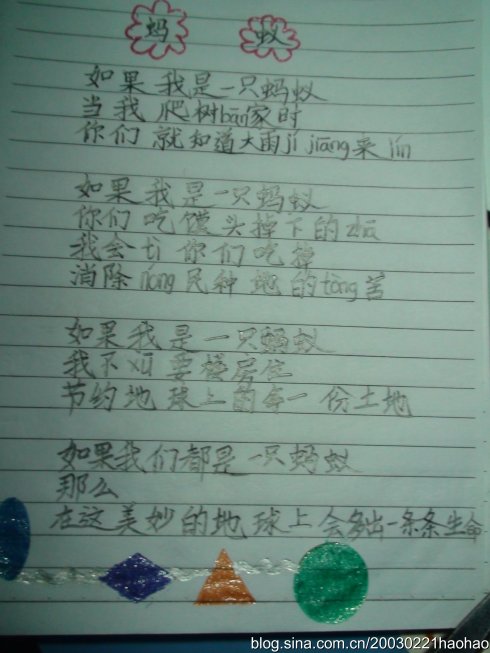 蚂 蚁
如果我是一只蚂蚁
当我爬树bān家时
你们就知道大雨jí jiāng来lín
如果我是一只蚂蚁
你们吃馍头掉下的zhā
我会tì你们吃掉
消除nóng民种地的tòng苦
如果我是一只蚂蚁
我不xū要楼房住
节约地球上的每一份土地
如果我们都是一只蚂蚁
那么
在这美妙的地球上会多出一条条生命
blog.sina.com.cn/20030221haohao